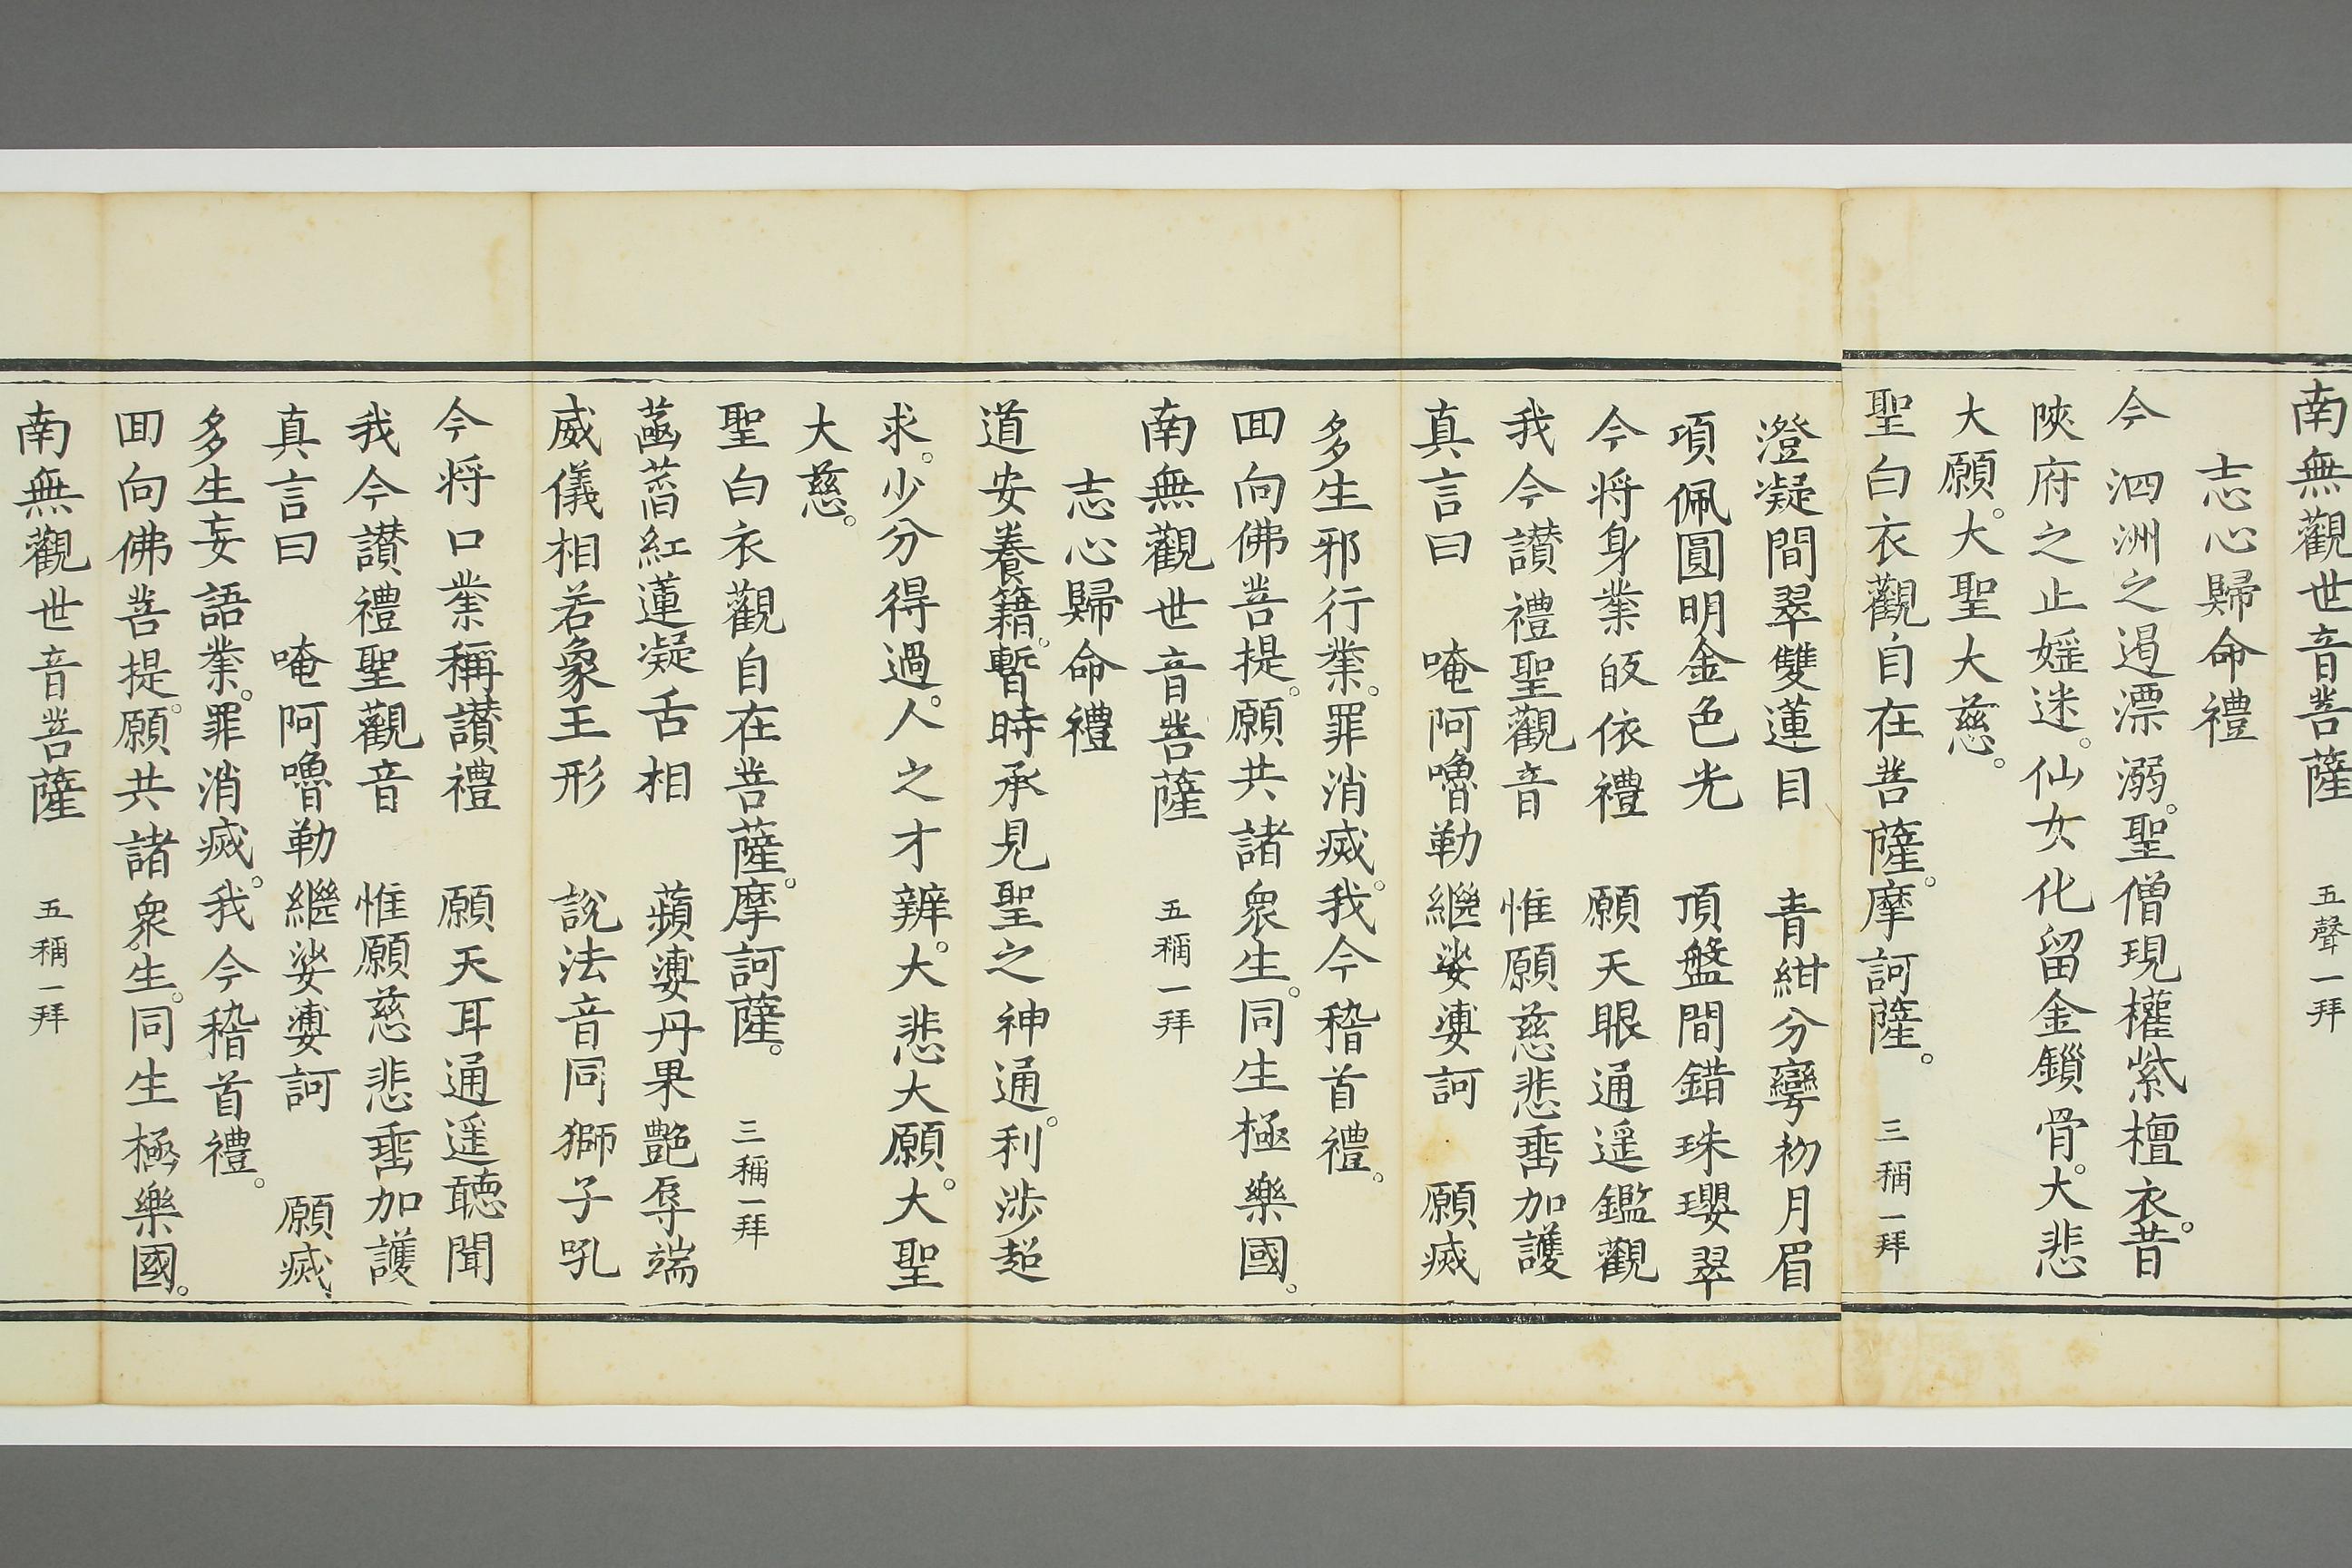 南無觀世音菩薩 五聲一拜
志心歸命禮
今 泗洲之遏漂溺。聖僧現權紫檀衣。昔
陝府之止婬迷。仙女化留金鎖骨。大悲
大願。大聖大慈。
聖白衣觀自在菩薩。摩訶薩。 三稱一拜
澄凝間翠雙蓮目 青紺分彎初月眉
項佩圓明金色光 頂盤間錯珠瓔翠
今將身業皈依禮 願天眼通遥鑑觀
我今讃禮聖觀音 惟願慈悲垂加護
真言曰 唵阿嚕勒繼娑婆訶 願滅
多生邪行業。罪消滅。我今稽首禮。
回向佛菩提。願共諸衆生。同生極樂國。
南無觀世音菩薩 五稱一拜
志心歸命禮
道安養籍。暫時承見聖之神通。利涉超
求。少分得過。人之才辨。大悲大願。大聖
大慈。
聖白衣觀自在菩薩。摩訶薩。 三稱一拜
菡萏紅蓮凝舌相 蘋婆丹果艷唇端
威儀相若象王形 説法音同獅子吼
今將口業稱讃禮 願天耳通遥聽聞
我今讃禮聖觀音 惟願慈悲垂加護
真言曰 唵阿嚕勒繼娑婆訶 願滅
多生妄語業。罪消滅。我今稽首禮。
回向佛菩提。願共諸衆生。同生極樂國。
南無觀世音菩薩 五稱一拜